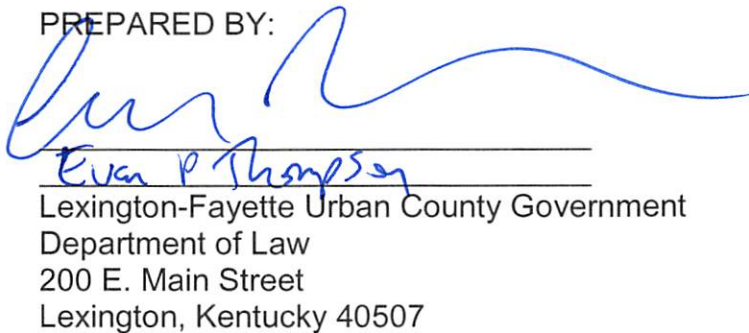 PREPARED BY:
Evan P Thompson
Lexington-Fayette Urban County Government
Department of Law
200 E. Main Street
Lexington, Kentucky 40507